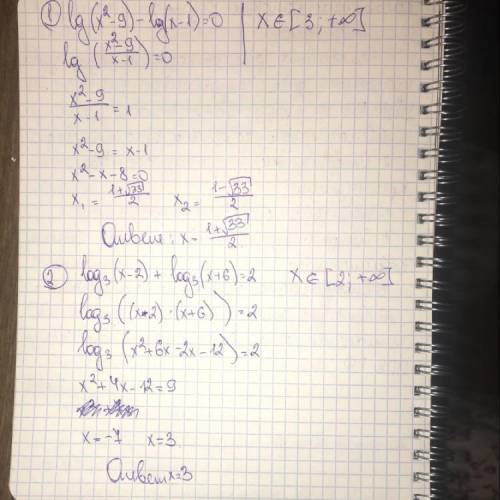 ① lg(x²-9) - lg(x-1)=0 | x∈[3;+∞]
lg(x²-9/x-1)=0
x²-9/x-1 = 1
x²-9 = x-1
x²-x-8=0
x₁ = 1+√33/2 x₂ = 1-√33/2
Ответ: x= 1+√33/2
② log₃(x-2) + log₃(x+6)=2 x∈[2;+∞]
log₃((x-2)·(x+6))=2
log₃(x²+6x-2x-12)=2
x²+4x-12=9
x=-7 x=3
Ответ x=3